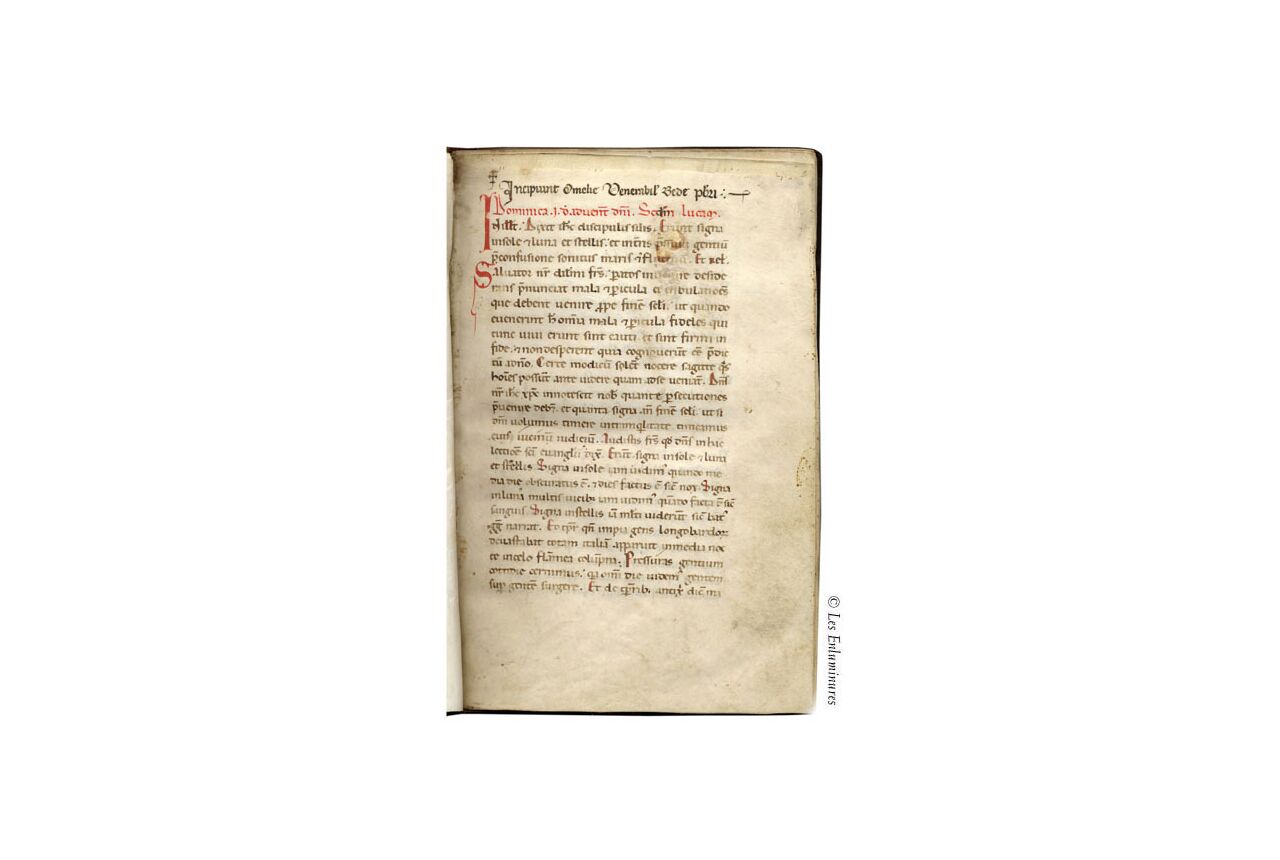 Incipiunt Omelie Venerabil' Bede pbri
Dominica .i. d' advent' dni. Scdm lucam.
In illt. Dixit ihc discipulis suis. Erunt signa
in sole et luna et stellis. et in tris gentium
p confusione sonitus maris et Et rel.
Salvator nr frs. paratos deside
rans pnunciat mala et picula et tribulationes
que debent venire ppe fine scli. ut quando
evenerint hec omia mala et picula fideles qui
tunc vivi erunt sint cauti et sint firmi in
fide. et non desperent quia cognoverunt ea pdic
ta a dno. Certe modicum solent nocere sagitte quas
hoies possunt ante videre quam ad se veniant. Dns
nr ihc xpc innotescit nob quante psecutiones
pvenire debent et quanta signa fine scli. ut si
dm volumus timere in tranquilitate timeamus
eius iudicium. Audistis frs qd dns in hac
lectione sci evangelii dixit. Erunt signa in sole et luna
et stellis. Signa in sole iam vidim' quando me
dia die obscuratus e. et dies factus e sic nox. Signa
in luna multis vicib; iam vidim' quando facta e sic
sanguis. Signa in stellis ia multi viderunt sic bat'
gg narrat. Eo tpr qn impia gens longobardor
devastabat totam italia. apparuit in media noc
te in celo flamea columpna. Pressuras gentium
cottidie cernimus. qa omi die videm' gentem
sup gente surgere. Et de
© Les Enluminures